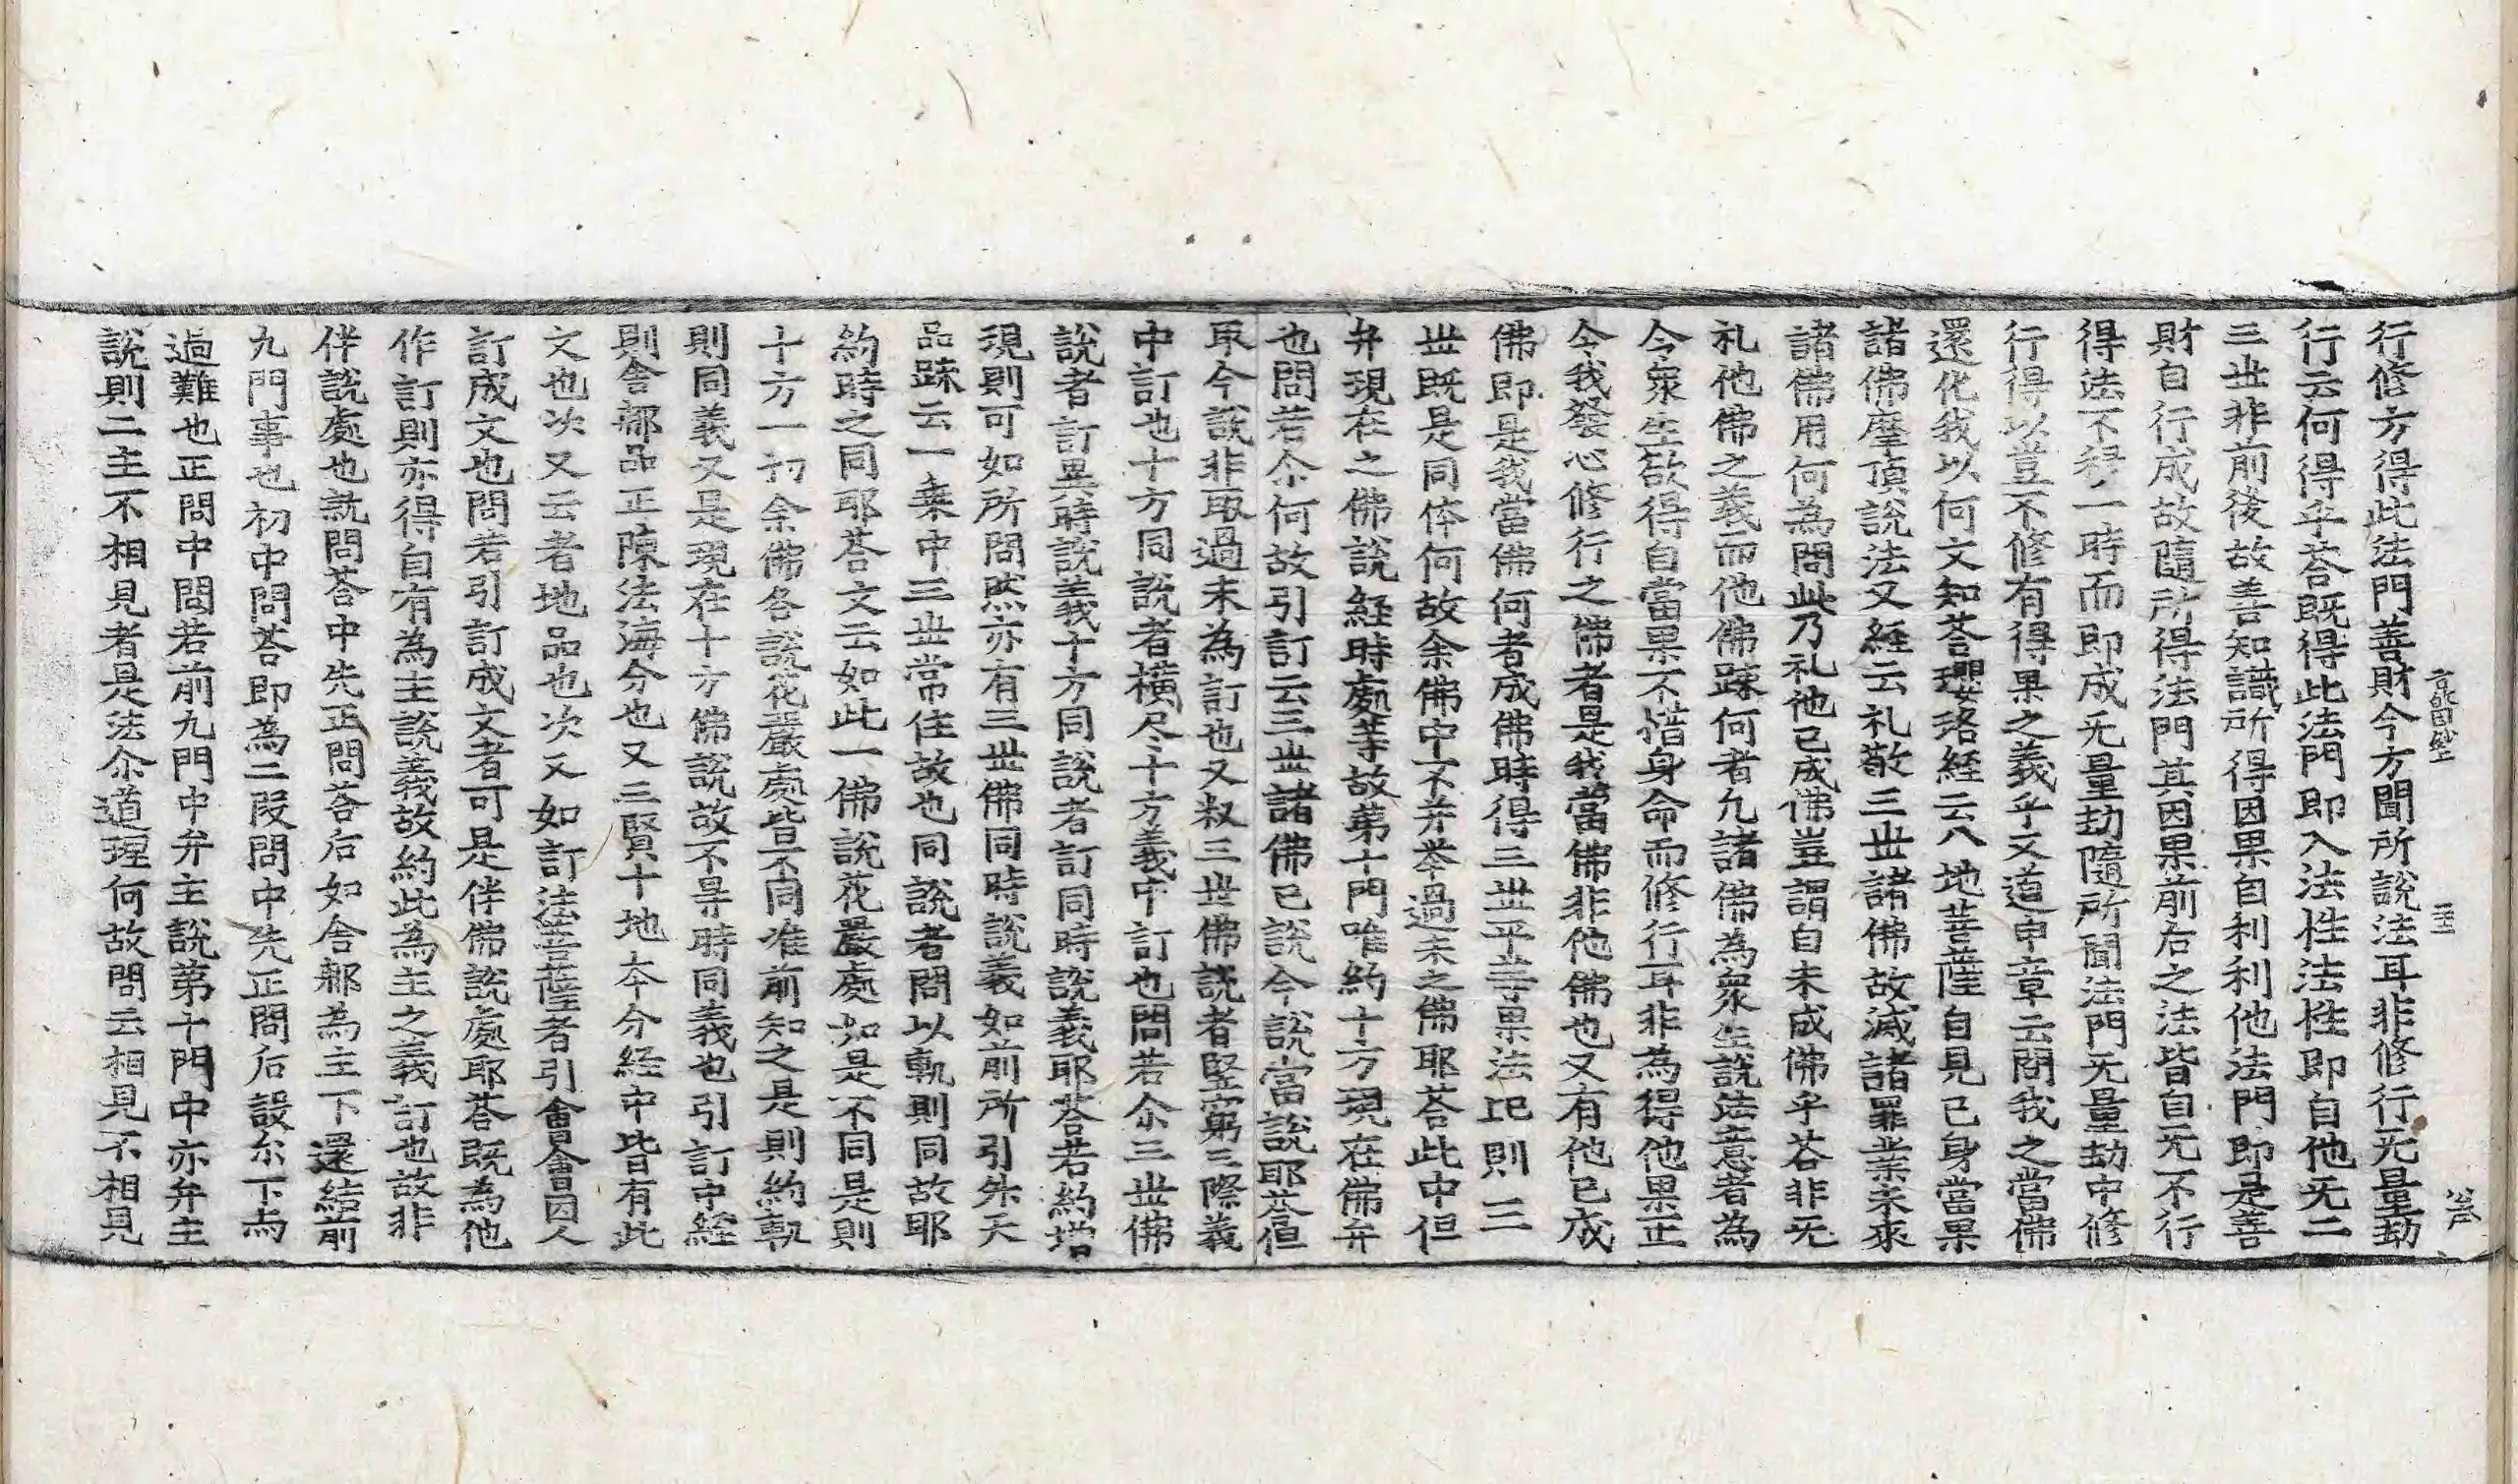 行修方得此法門善財今方聞所說法耳非修行无量劫
行云何得乎荅既得此法門即入法性法性即自他无二
三世非前後故善知識所得因果自利利他法門即是善
財自行成故隨所得法門其因果前后之法皆自无不行
得法不移一時而即成无量劫隨所聞法門无量劫中修
行得以豈不修有得果之義乎又道申章云問我之當佛
還化我以何文知荅瓔珞経云八地菩薩自見已身當果
諸佛摩頂說法又経云礼敬三世諸佛故滅諸罪業未來
諸佛用何為問此乃礼他已成佛豈謂自未成佛乎荅非无
礼他佛之義而他佛踈何者九諸佛為衆生說法意者為
今衆生欲得自當果不惜身命而修行耳非為得他果正
今我發心修行之佛者是我當佛非他佛也又有他已成
佛即是我當佛何者成佛時得三世平等果法記則三
世既是同体何故余佛中不并举過未之佛耶荅此中但
弁現在之佛說経時處等故第十門唯約十方現在佛弁
也問若尒何故引訂云三世諸佛已說今說當說耶荅但
取今說非取過未為訂也又叔三世佛說者竪窮三際義
中訂也十方同說者橫尽十方義中訂也問若尒三世佛
說者訂異時說義十方同說者訂同時說義耶荅若約增
現則可如所問然亦有三世佛同時說義如前所引朱天
品踈云一乗中三世常住故也同說者問以軌則同故耶
約時之同耶荅文云如此一佛說花嚴處如是不同是則
十方一切余佛各說花嚴處皆不同准前知之是則約軌
則同義又是現在十方佛說故不㝵時同義也引訂中経
則舍那品正陳法海分也又三賢十地本分経中皆有此
文也次又云者地品也次又如訂法菩薩者引會會因人
訂成文也問若引訂成文者可是伴佛說處耶荅既為他
作訂則亦得自有為主說義故約此為主之義訂也故非
伴說處也就問荅中先正問荅后如舍那為主下還結前
九門事也初中問荅即為二段問中先正問后設尒下両
過難也正問中問若前九門中弁主說第十門中亦弁主
說則二主不相見者是法尒道理何故問云相見不相見